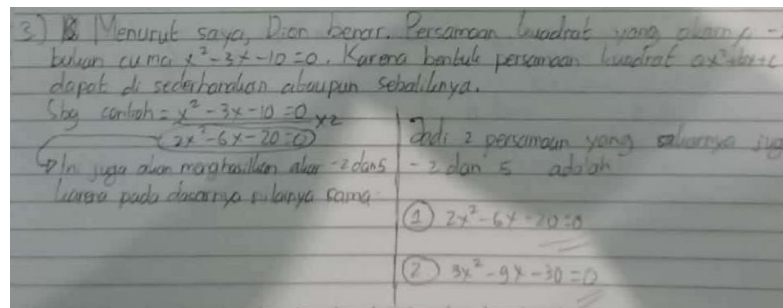 3) Menurut saya, Dion benar. Persamaan kuadrat yang akarnya -
bukan cuma x² - 3x - 10 = 0. Karena bentuk persamaan kuadrat ax²+bx+c
dapat di sederhanakan ataupun sebaliknya.
Sbg contoh = x² - 3x - 10 = 0 x2
2x² - 6x - 20 = 0
Ini juga akan menghasilkan akar -2 dan 5
karena pada dasarnya nilainya sama.
Jadi 2 persamaan yang akarnya jug
- 2 dan 5 adalah
① 2x² - 6x - 20 = 0
② 3x² - 9x - 30 = 0